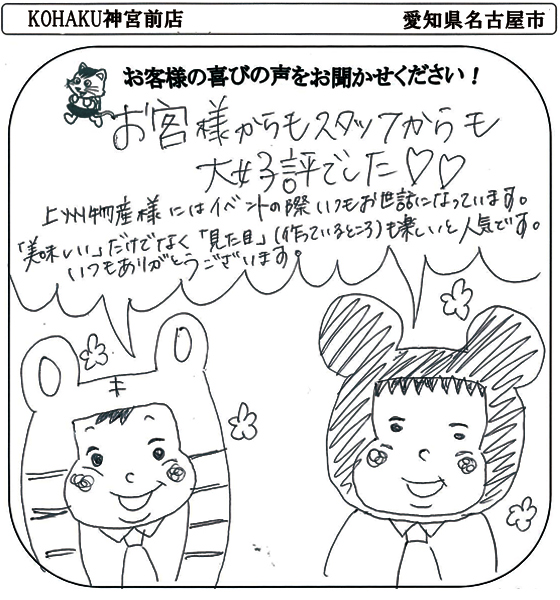 KOHAKU神宮前店
愛知県名古屋市
お客様の喜びの声をお聞かせください！
お客様からもスタッフからも
大好評でした♡♡
上州物産様にはイベントの際いつもお世話になっています。
「美味しい」だけでなく「見た目」(作っているところ)も楽しいと人気です。
いつもありがとうございます。